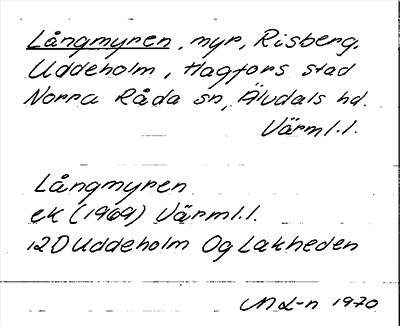 Långmyren, myr, Risberg,
Uddeholm, Hagfors stad
Norra Råda sn, Älvdals hd.
Värml.l.
Långmyren
ek (1969) Värml.l.
12D Uddeholm Og Lakheden
ML-n 1970